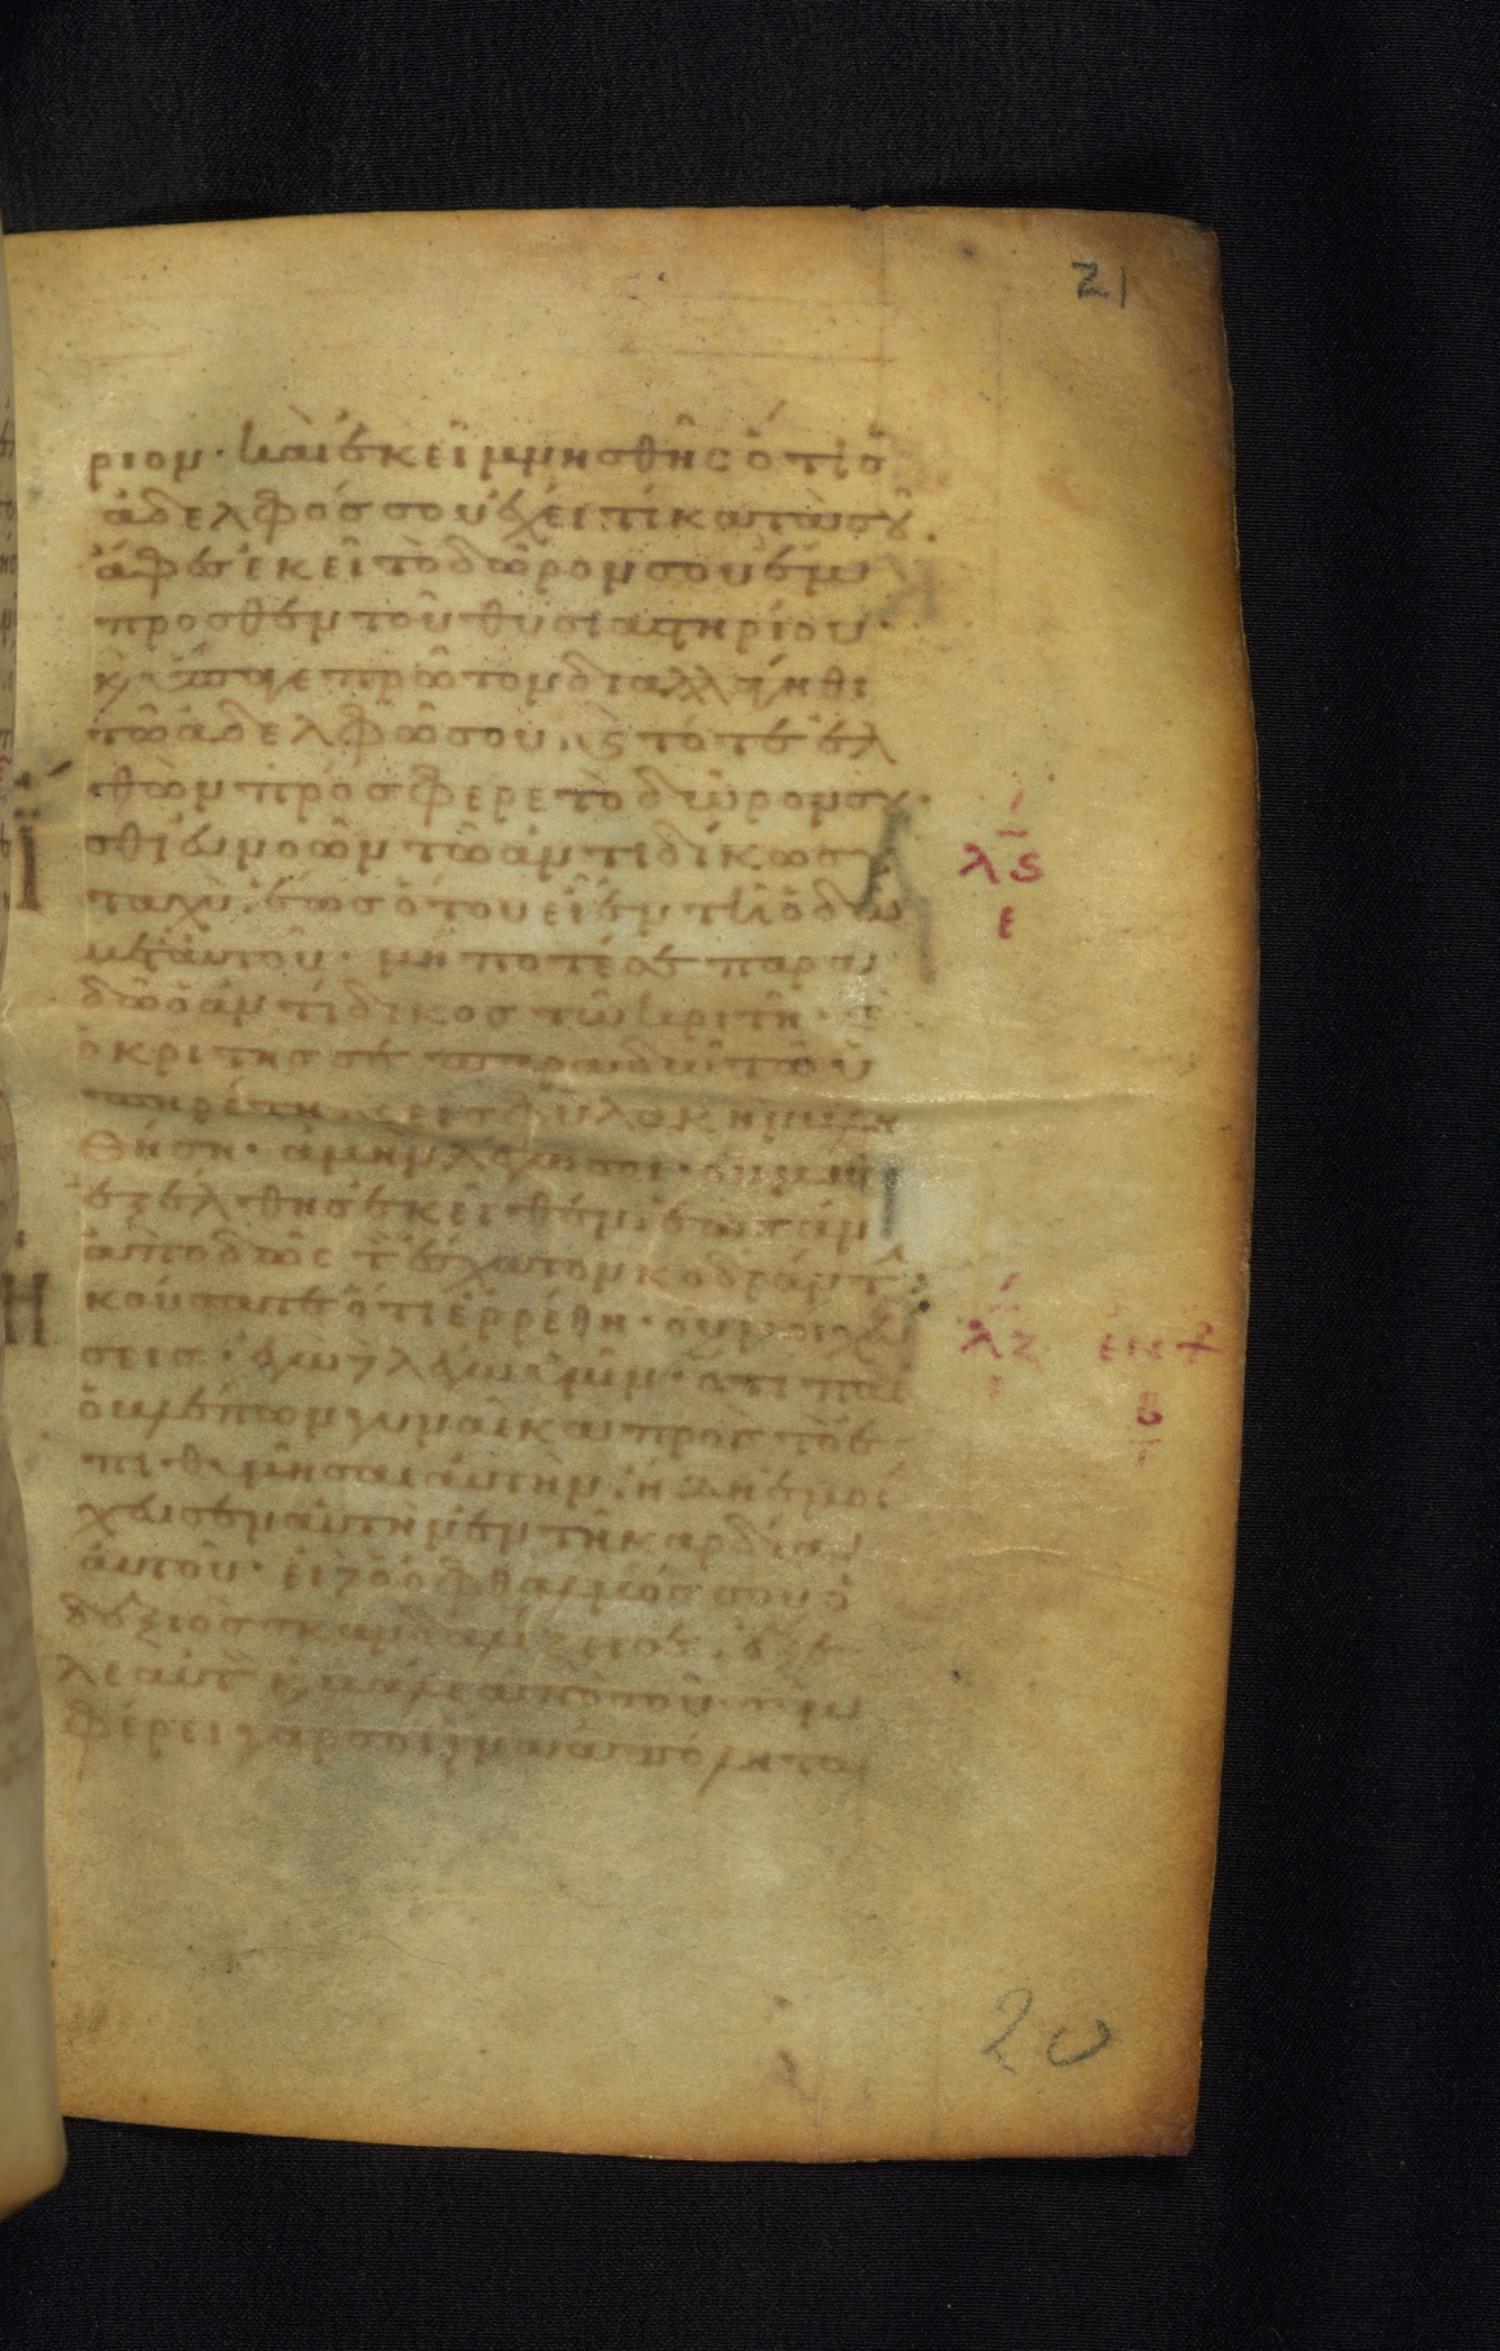 21
ριον· καὶ ἐκεῖ μνησθῆς ὅτι ὁ
ἀδελφός σου ἔχει τι κατὰ σου.
ἄφες ἐκεῖ τὸ δῶρον σου ἔμ
προσθεν τοῦ θυσιαστηρίου·
κ ὕπαγε πρῶτον διαλλάγηθι
τῶ ἀδελφῶ σου κς τότε ἐλ
θὼν πρόσφερε τὸ δῶρον σου·
Ἴσθι εὐνοῶν τῶ ἀντιδίκω σου
ταχὺ. ἕως ὅτου εἶ ἐν τῆ ὁδῶ
μετ' αὐτοῦ· μήποτέ σε παρα
δῶ ὁ ἀντίδικος τῶ κριτῆ·
ὁ κριτής σε παραδῶ τῶ ὑ
πηρέτη κς εἰς φυλακὴν βλη
θήση· ἀμὴν λέγω σοι· οὐ μὴ
ἐξέλθης ἐκεῖθεν· ἕως ἂν
ἀποδῶς τ ἔσχατον κοδράντ
Ἠκούσατε ὅτι ἐρρέθη· οὐ μοιχεύ
σεις· ἐγὼ λέγω ὑμῖν· ὅτι πᾶς
ὁ βλέπων γυναῖκα πρὸς τὸ ἐ
πιθυμῆσαι αὐτήν· ἤδη ἐμοί
χευσεν αὐτὴν ἐν τῆ καρδία
αὐτοῦ· εἰ ὁ ὀφθαλμός σου ὁ
δεξιὸς σκανδαλίζει σε. ἔξε
λε αὐτ κ βάλε ἀπὸ σοῦ· συμ
φέρει γάρ σοι ἵνα ἀπόληται
λς
ε
λζ
20